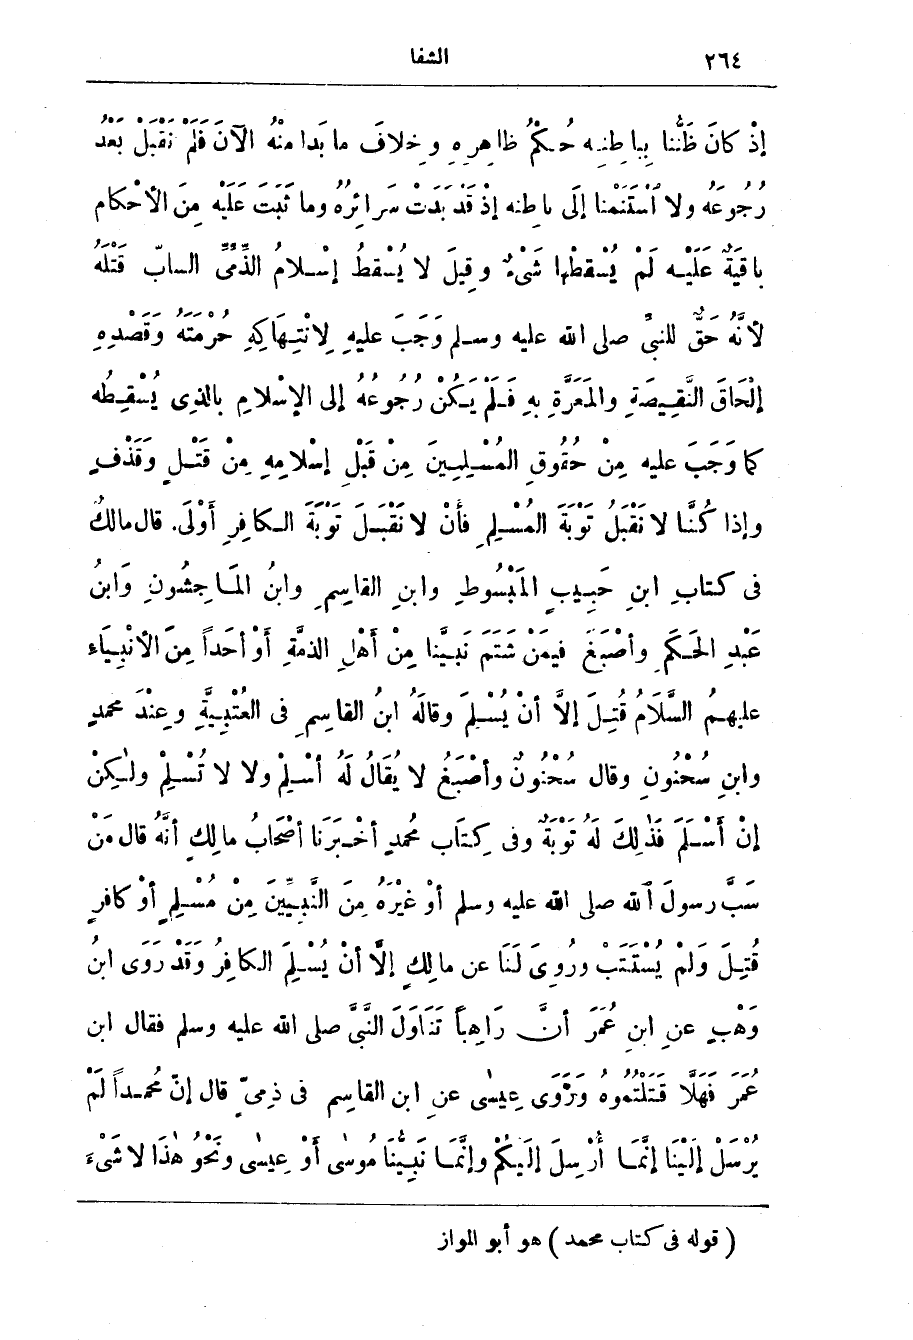 ٢٦٤ الشفا
إذْ كانَ ظَنُّنا بِباطِنِه حُكْمُ ظاهِرِهِ وخِلافَ ما بَدا مِنْهُ الآنَ فَلَمْ نَقْبَلْ بَعْدُ
رُجُوعَهُ ولا اُسْتَنَمْنا إلَى باطِنه إذْ قَدْ بَدَتْ سَرائِرُهُ وما ثَبَتَ عَلَيْه مِنَ الأحْكام
باقيَةٌ عَلَيْه لَمْ يُسْقطْها شَىْءٌ وقِيلَ لا يُسْقطُ إسْلامُ الذِّمِّىِّ السابّ قَتْلَهُ
لأنَّهُ حَقٌّ للنبىِّ صلى الله عليه وسلم وَجَبَ عليهِ لِانْتِهَاكِهِ حُرْمَتَهُ وَقَصْدِهِ
إلْحَاقَ النَّقِيصَةِ والمَعَرَّةِ بِهِ فَلَمْ يَكُنْ رُجُوعُهُ إلى الإسْلامِ بالذى يُسْقِطُه
كما وَجَبَ عليه مِنْ حُقُوقِ المُسْلِمِينَ مِنْ قَبْلِ إسْلامِهِ مِنْ قَتْلٍ وقَذْفٍ
وإذا كُنَّا لا نَقْبَلُ تَوْبَةَ المُسْلِمِ فأنْ لا نَقْبَلَ تَوْبَةَ الكافِرِ أَوْلَى. قال مالكٌ
فى كتابِ ابنِ حَبِيبٍ المَبْسُوطِ وابنِ القاسِمِ وابنُ المَاجِشُونِ وَابنُ
عَبْدِ الحَكَمِ وأصْبَغَ فيمَنْ شَتَمَ نَبِيَّنا مِنْ أهْلِ الذمَّةِ أوْ أحَداً مِنَ الأنْبِيَاءِ
عليهمُ السَّلَامُ قُتِلَ إلاَّ أنْ يُسْلِمَ وقالَهُ ابنُ القاسِمِ فى العُتْبِيَّةِ وعِنْدَ محمدٍ
وابنِ سُحْنُونٍ وقال سُحْنُونٌ وأصْبَغُ لا يُقَالُ لَهُ أسْلِمْ ولا لا تُسْلِمْ ولٰكِنْ
إنْ أَسْلَمَ فَذٰلِكَ لَهُ تَوْبَةٌ وفى كِتَاب مُحمدٍ أخْبَرَنا أصْحَابُ مالِكٍ أنَّهُ قال مَنْ
سَبَّ رسولَ اُلله صلى الله عليه وسلم أوْ غيْرَهُ مِنَ النَّبِيِّينَ مِنْ مُسْلِمٍ أوْ كافرٍ
قُتِلَ وَلَمْ يُسْتَتَبْ ورُوِىَ لَنَا عن مالِكٍ إلاَّ أنْ يُسْلِمَ الكافِرُ وَقَدْ رَوَى ابنُ
وَهْبٍ عنِ ابنِ عُمَرَ أنَّ رَاهِباً تَنَاوَلَ النَّبىَّ صلى الله عليه وسلم فقال ابن
عُمَرَ فَهَلَّا قَتَلْتُمُوهُ وَرَوَى عِيسٰى عن ابن القاسِم فى ذِمىٍّ قال إنّ مُحمداً لَمْ
يُرْسَلْ إلَيْنَا إنَّمَا أُرْسِلَ إلَيكُمْ وإنَّمَا نَبِيُّنَا مُوسٰى أوْ عِيسٰى ونَحْوُ هٰذا لا شَىْءَ
( قوله فى كتاب محمد ) هو أبو المواز